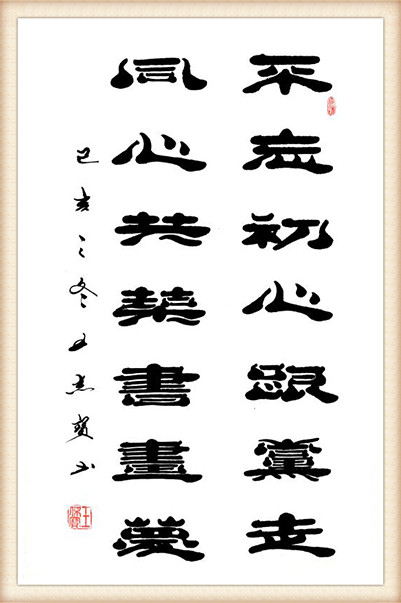 不忘初心跟黨走
同心共築書畫夢
己亥之冬王志书